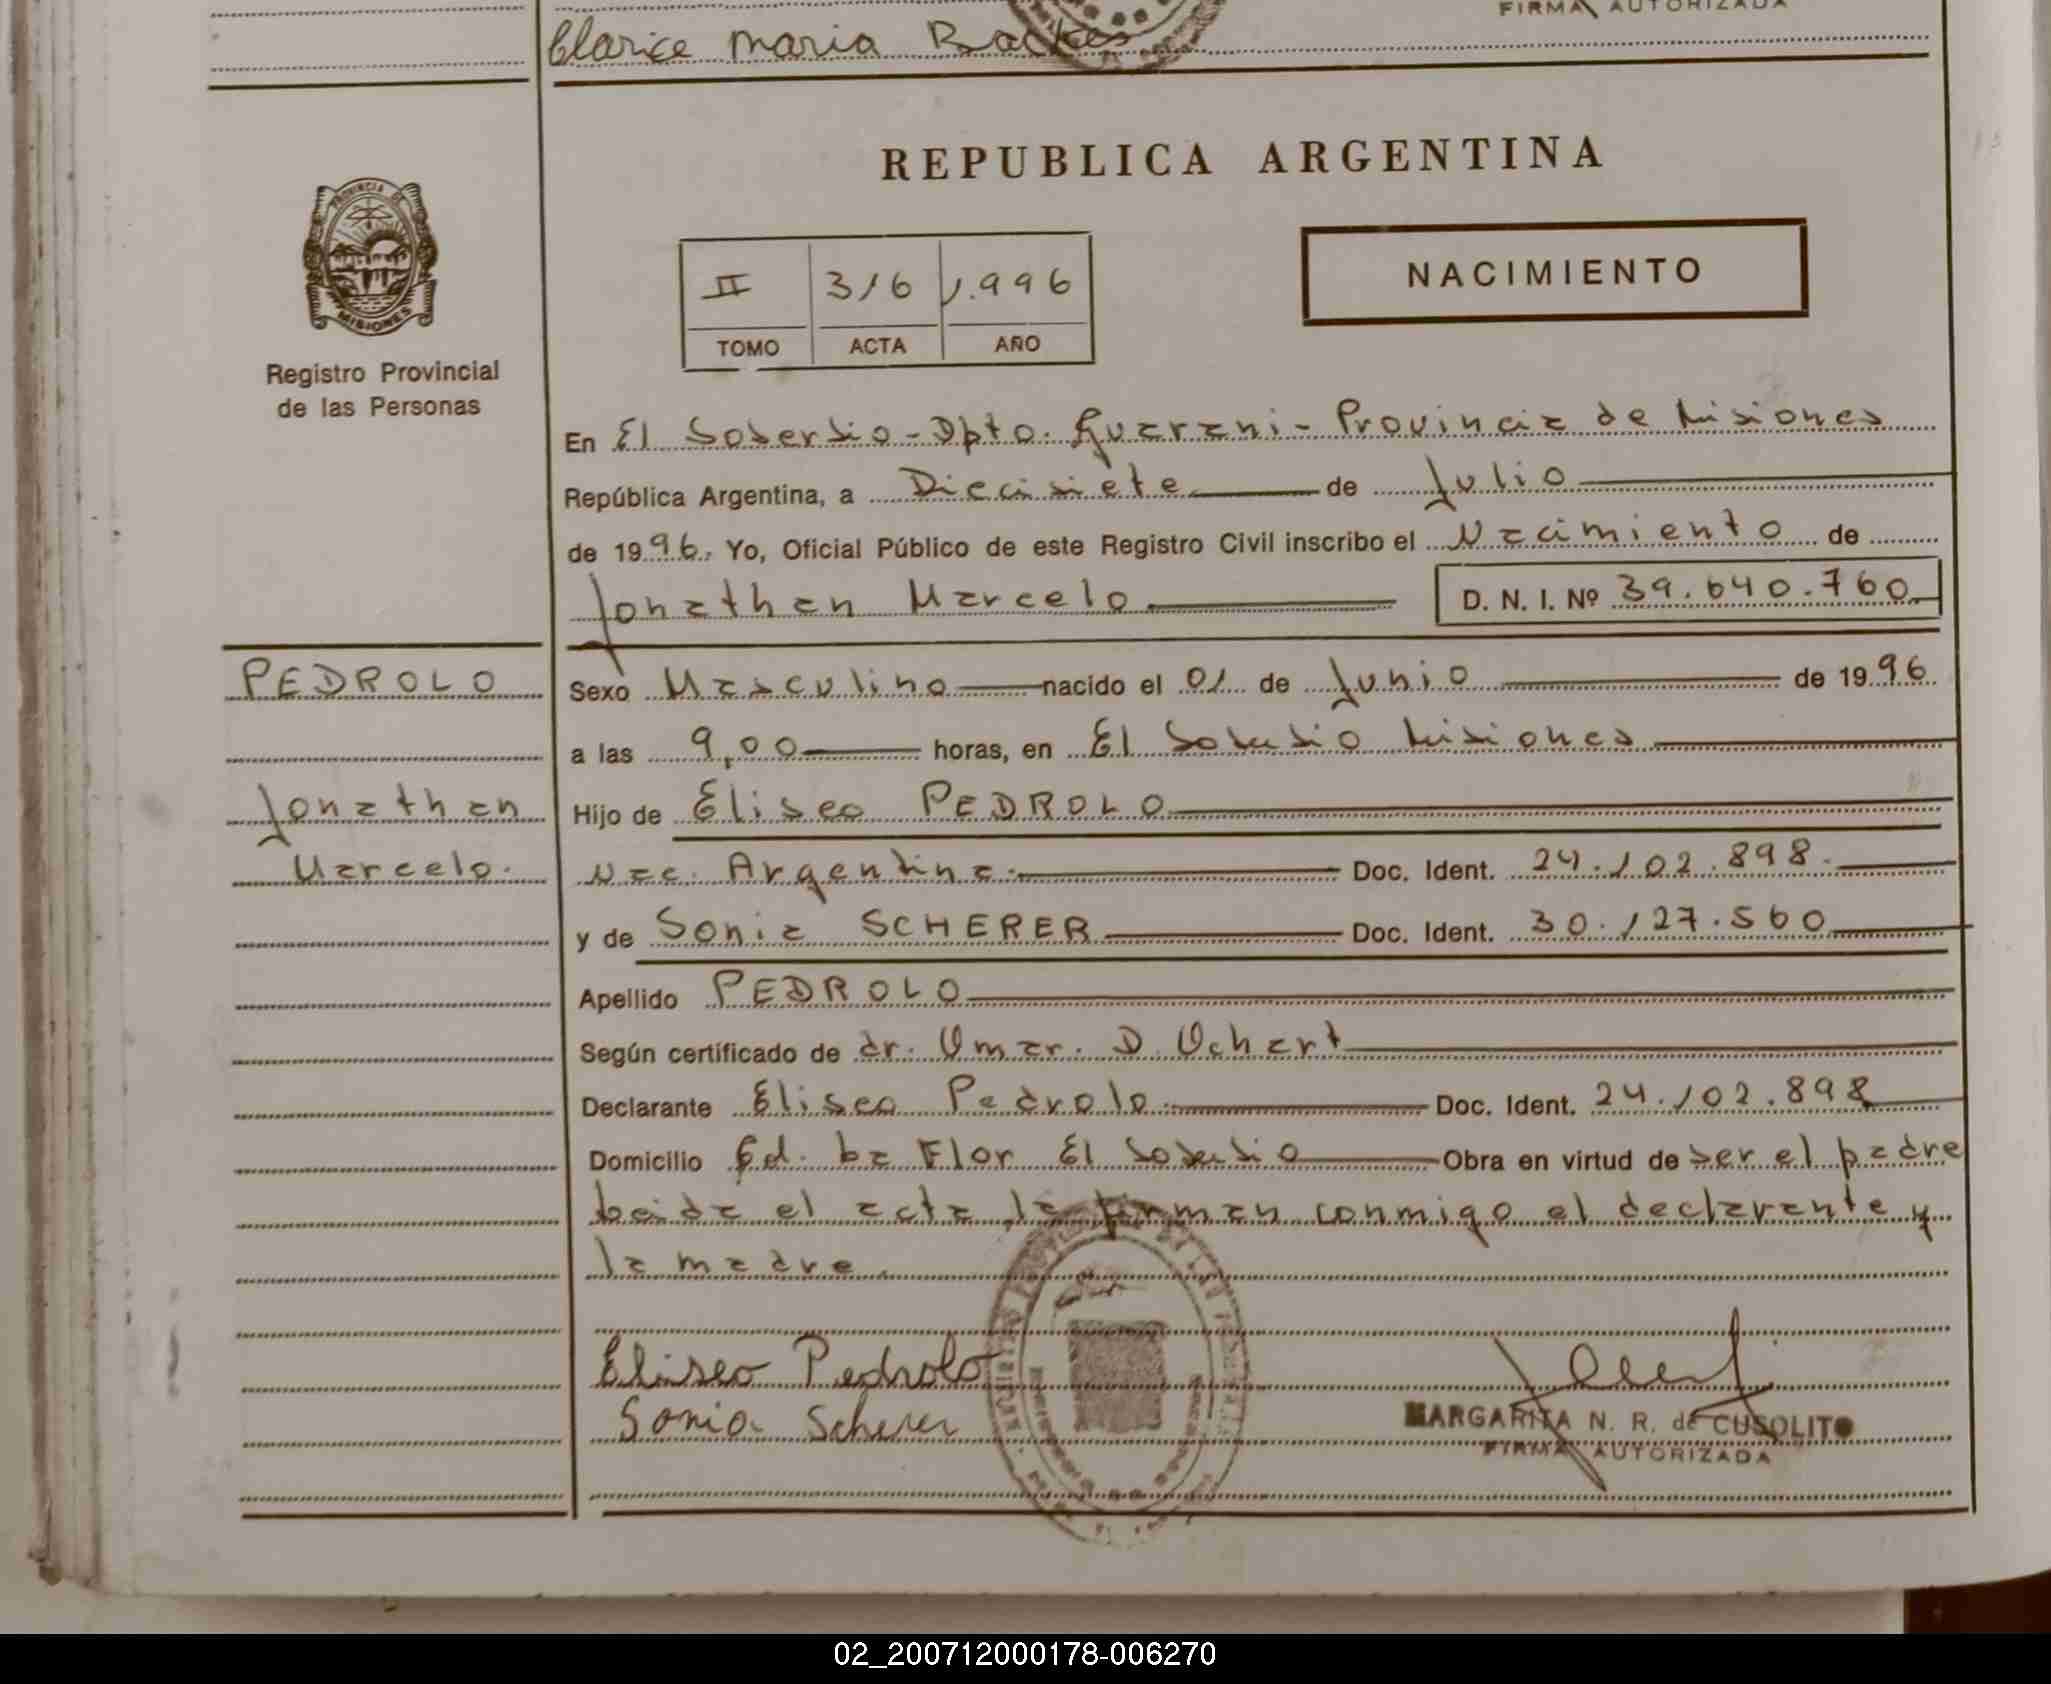 FIRMA AUTORIZADA
Clarice Maria Backes
REPUBLICA ARGENTINA
PROVINCIA DE
MISIONES
Registro Provincial
de las Personas
II 316 1.996
TOMO ACTA AÑO
NACIMIENTO
En El Soberbio - Dpto. Guarani - Provincia de Misiones
República Argentina, a Diecisiete de Julio
de 1996. Yo, Oficial Público de este Registro Civil inscribo el Nacimiento de
Jonathan Marcelo D. N. I. Nº 39.640.760
PEDROLO
Jonathan
Marcelo.
Sexo Masculino nacido el 01 de Junio de 1996
a las 9,00 horas, en El Soberbio Misiones
Hijo de Eliseo PEDROLO
Nac. Argentina. Doc. Ident. 24.102.898.
y de Sonia SCHERER Doc. Ident. 30.127.560
Apellido PEDROLO
Según certificado de dr. Omar. D. Ochart
Declarante Eliseo Pedrolo Doc. Ident. 24.102.898
Domicilio Cd. La Flor El Soberbio Obra en virtud de ser el padre
Leida el acta la firman conmigo el declarante y
la madre.
Eliseo Pedrolo
Sonia Scherer
MARGARITA N. R. de CUSOLITO
FIRMA AUTORIZADA
02_200712000178-006270